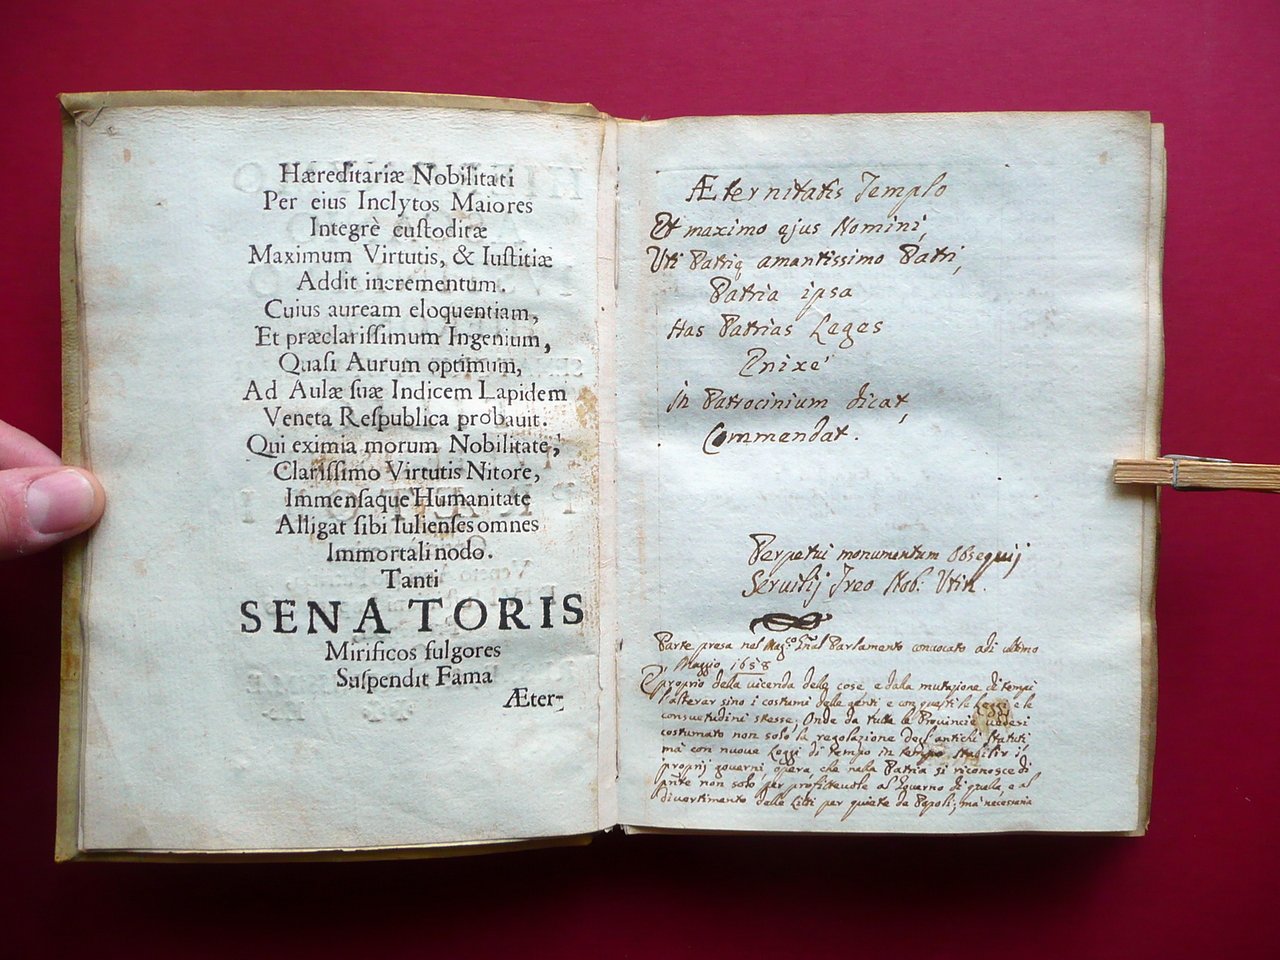 Hæreditariæ Nobilitati
Per eius Inclytos Maiores
Integrè cuſtoditæ
Maximum Virtutis, & Iuſtitiæ
Addit incrementum.
Cuius auream eloquentiam,
Et præclariſſimum Ingenium,
Quaſi Aurum optimum,
Ad Aulæ ſuæ Indicem Lapidem
Veneta Reſpublica probauit.
Qui eximia morum Nobilitate,
Clariſſimo Virtutis Nitore,
Immenſaque Humanitate
Alligat ſibi Iulienſes omnes
Immortali nodo.
Tanti
SENATORIS
Mirificos fulgores
Suſpendit Fama
Æter-
Æternitatis Templo
Et maximo ejus Nomini,
Uti Patrię amantissimo Patri,
Patria ipsa
Has Patrias Leges
Enixé
in Patrocinium dicat,
Commendat.
Perpetui monumentum Obsequij
Seruilij Treo Nob. Utin.
Parte presa nel Mag.co Gñal Parlamento conuocato adi ultimo
Maggio 1658
E proprio della vicenda delle cose e dalla mutazione di tempi
l'alterar sino i costumi delle genti e con questi le Leggi e le
consuetudini stesse; Onde da tutte le Prouincie uedesi
costumato non solo la regolazione degl'antichi statuti
ma con nuoue Leggi di tempo in tempo stabilir i
proprij gouerni, opera che nella Patria si riconosce di
non solo per profitteuole al Gouerno di quella, e al
diuertimento delle Liti per quiete de Popoli; ma necessaria